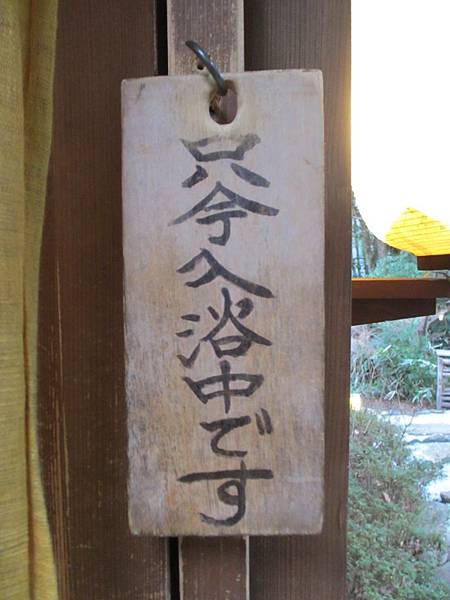 只今入浴中です